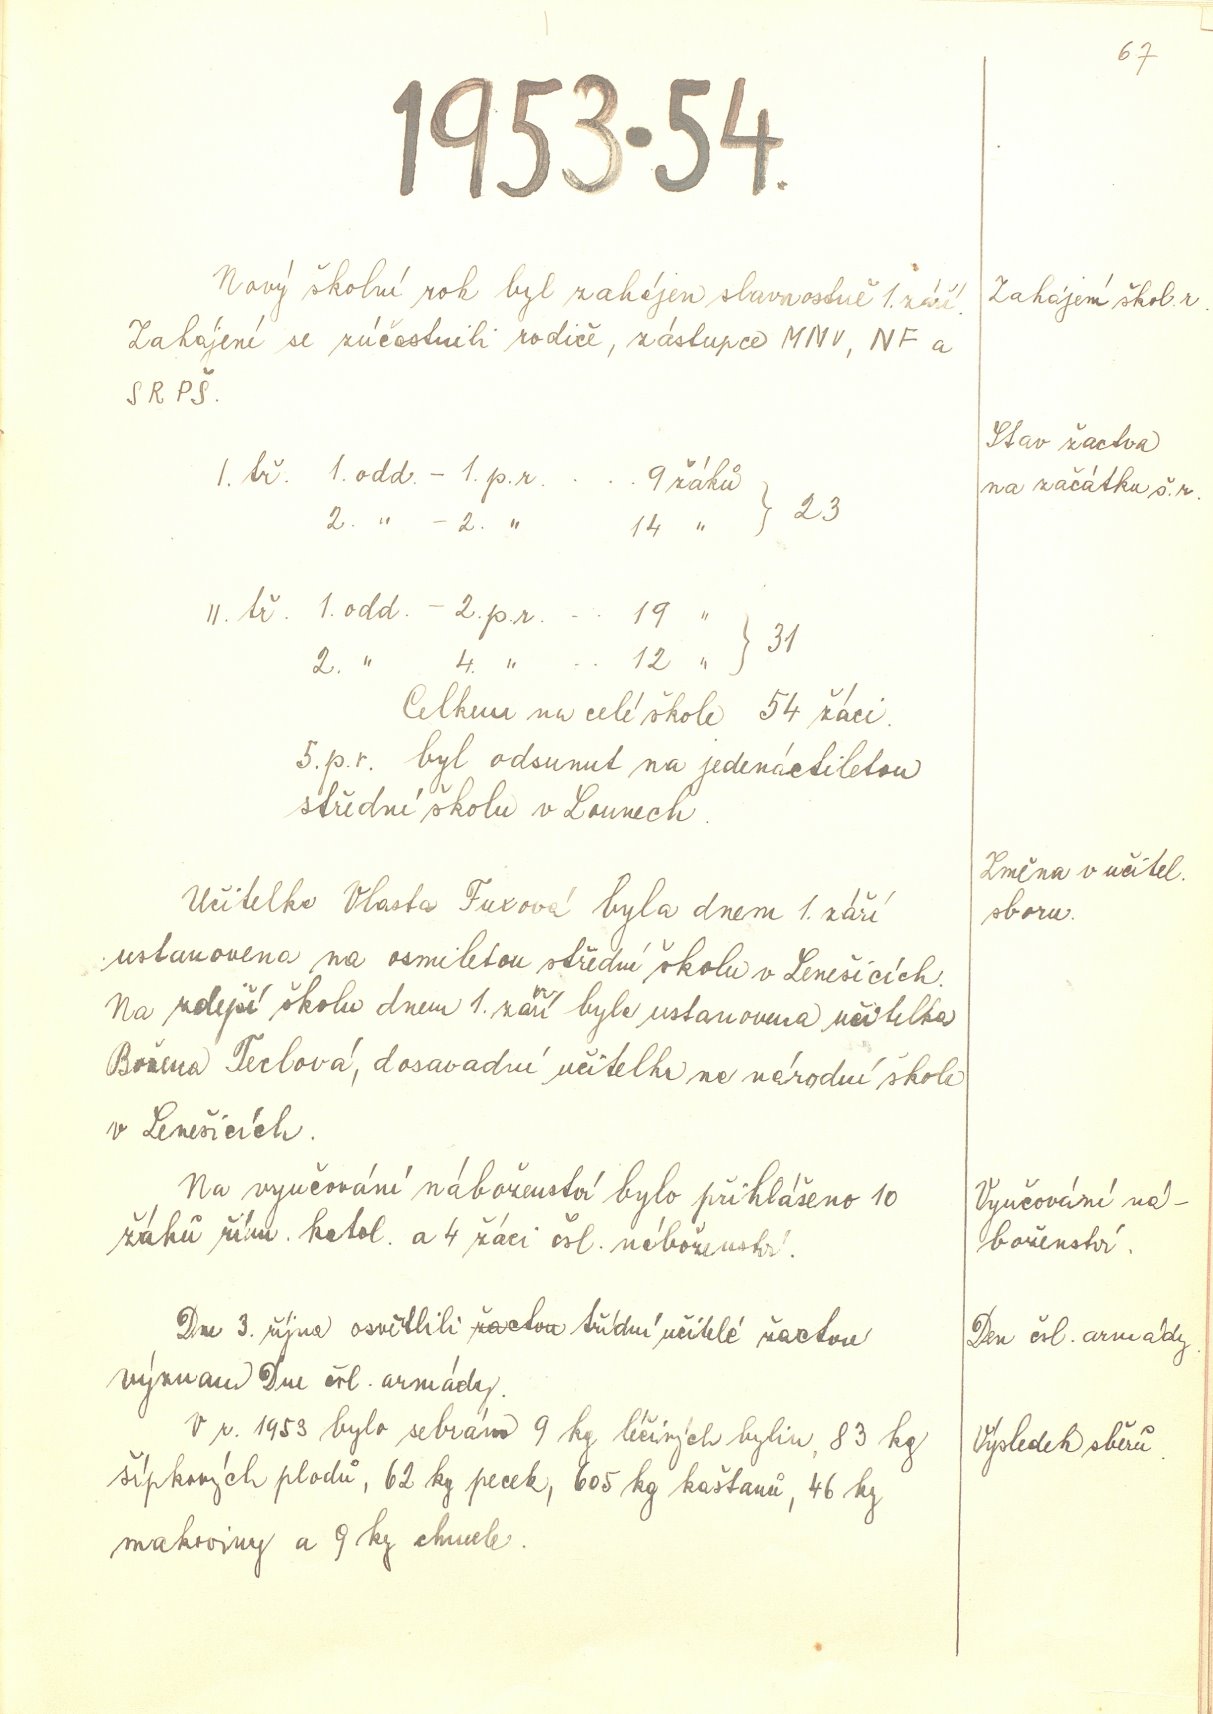 67
1953·54.
Nový školní rok byl zahájen slavnostně 1. září.
Zahájení škol. r.
Zahájení se zúčastnili rodiče, zástupce MNV, NF a
SRPŠ.
Stav žactva
na začátku š. r.
I. tř. 1. odd. – 1. p. r. . . . 9 žáků
2. " – 2. " 14 " } 23
II. tř. 1. odd. – 2. p. r. . . 19 "
2. " 4. " . . 12 " } 31
Celkem na celé škole 54 žáci.
5. p. r. byl odsunut na jedenáctiletou
střední školu v Lounech.
Změna v učitel.
sboru.
Učitelka Vlasta Fuxová byla dnem 1. září
ustanovena na osmiletou střední školu v Lenešicích.
Na zdejší školu dnem 1. září byla ustanovena učitelka
Božena Teclová, dosavadní učitelka na národní škole
v Lenešicích.
Na vyučování náboženství bylo přihlášeno 10
žáků řím. katol. a 4 žáci čsl. náboženství.
Vyučování ná-
boženství.
Dne 3. října osvětlili žactvu třídní učitelé žactvu
význam Dne čsl. armády.
Den čsl. armády.
V r. 1953 bylo sebráno 9 kg léčivých bylin, 83 kg
Výsledek sběrů.
šípkových plodů, 62 kg pecek, 605 kg kaštanů, 46 kg
makoviny a 9 kg chmele.